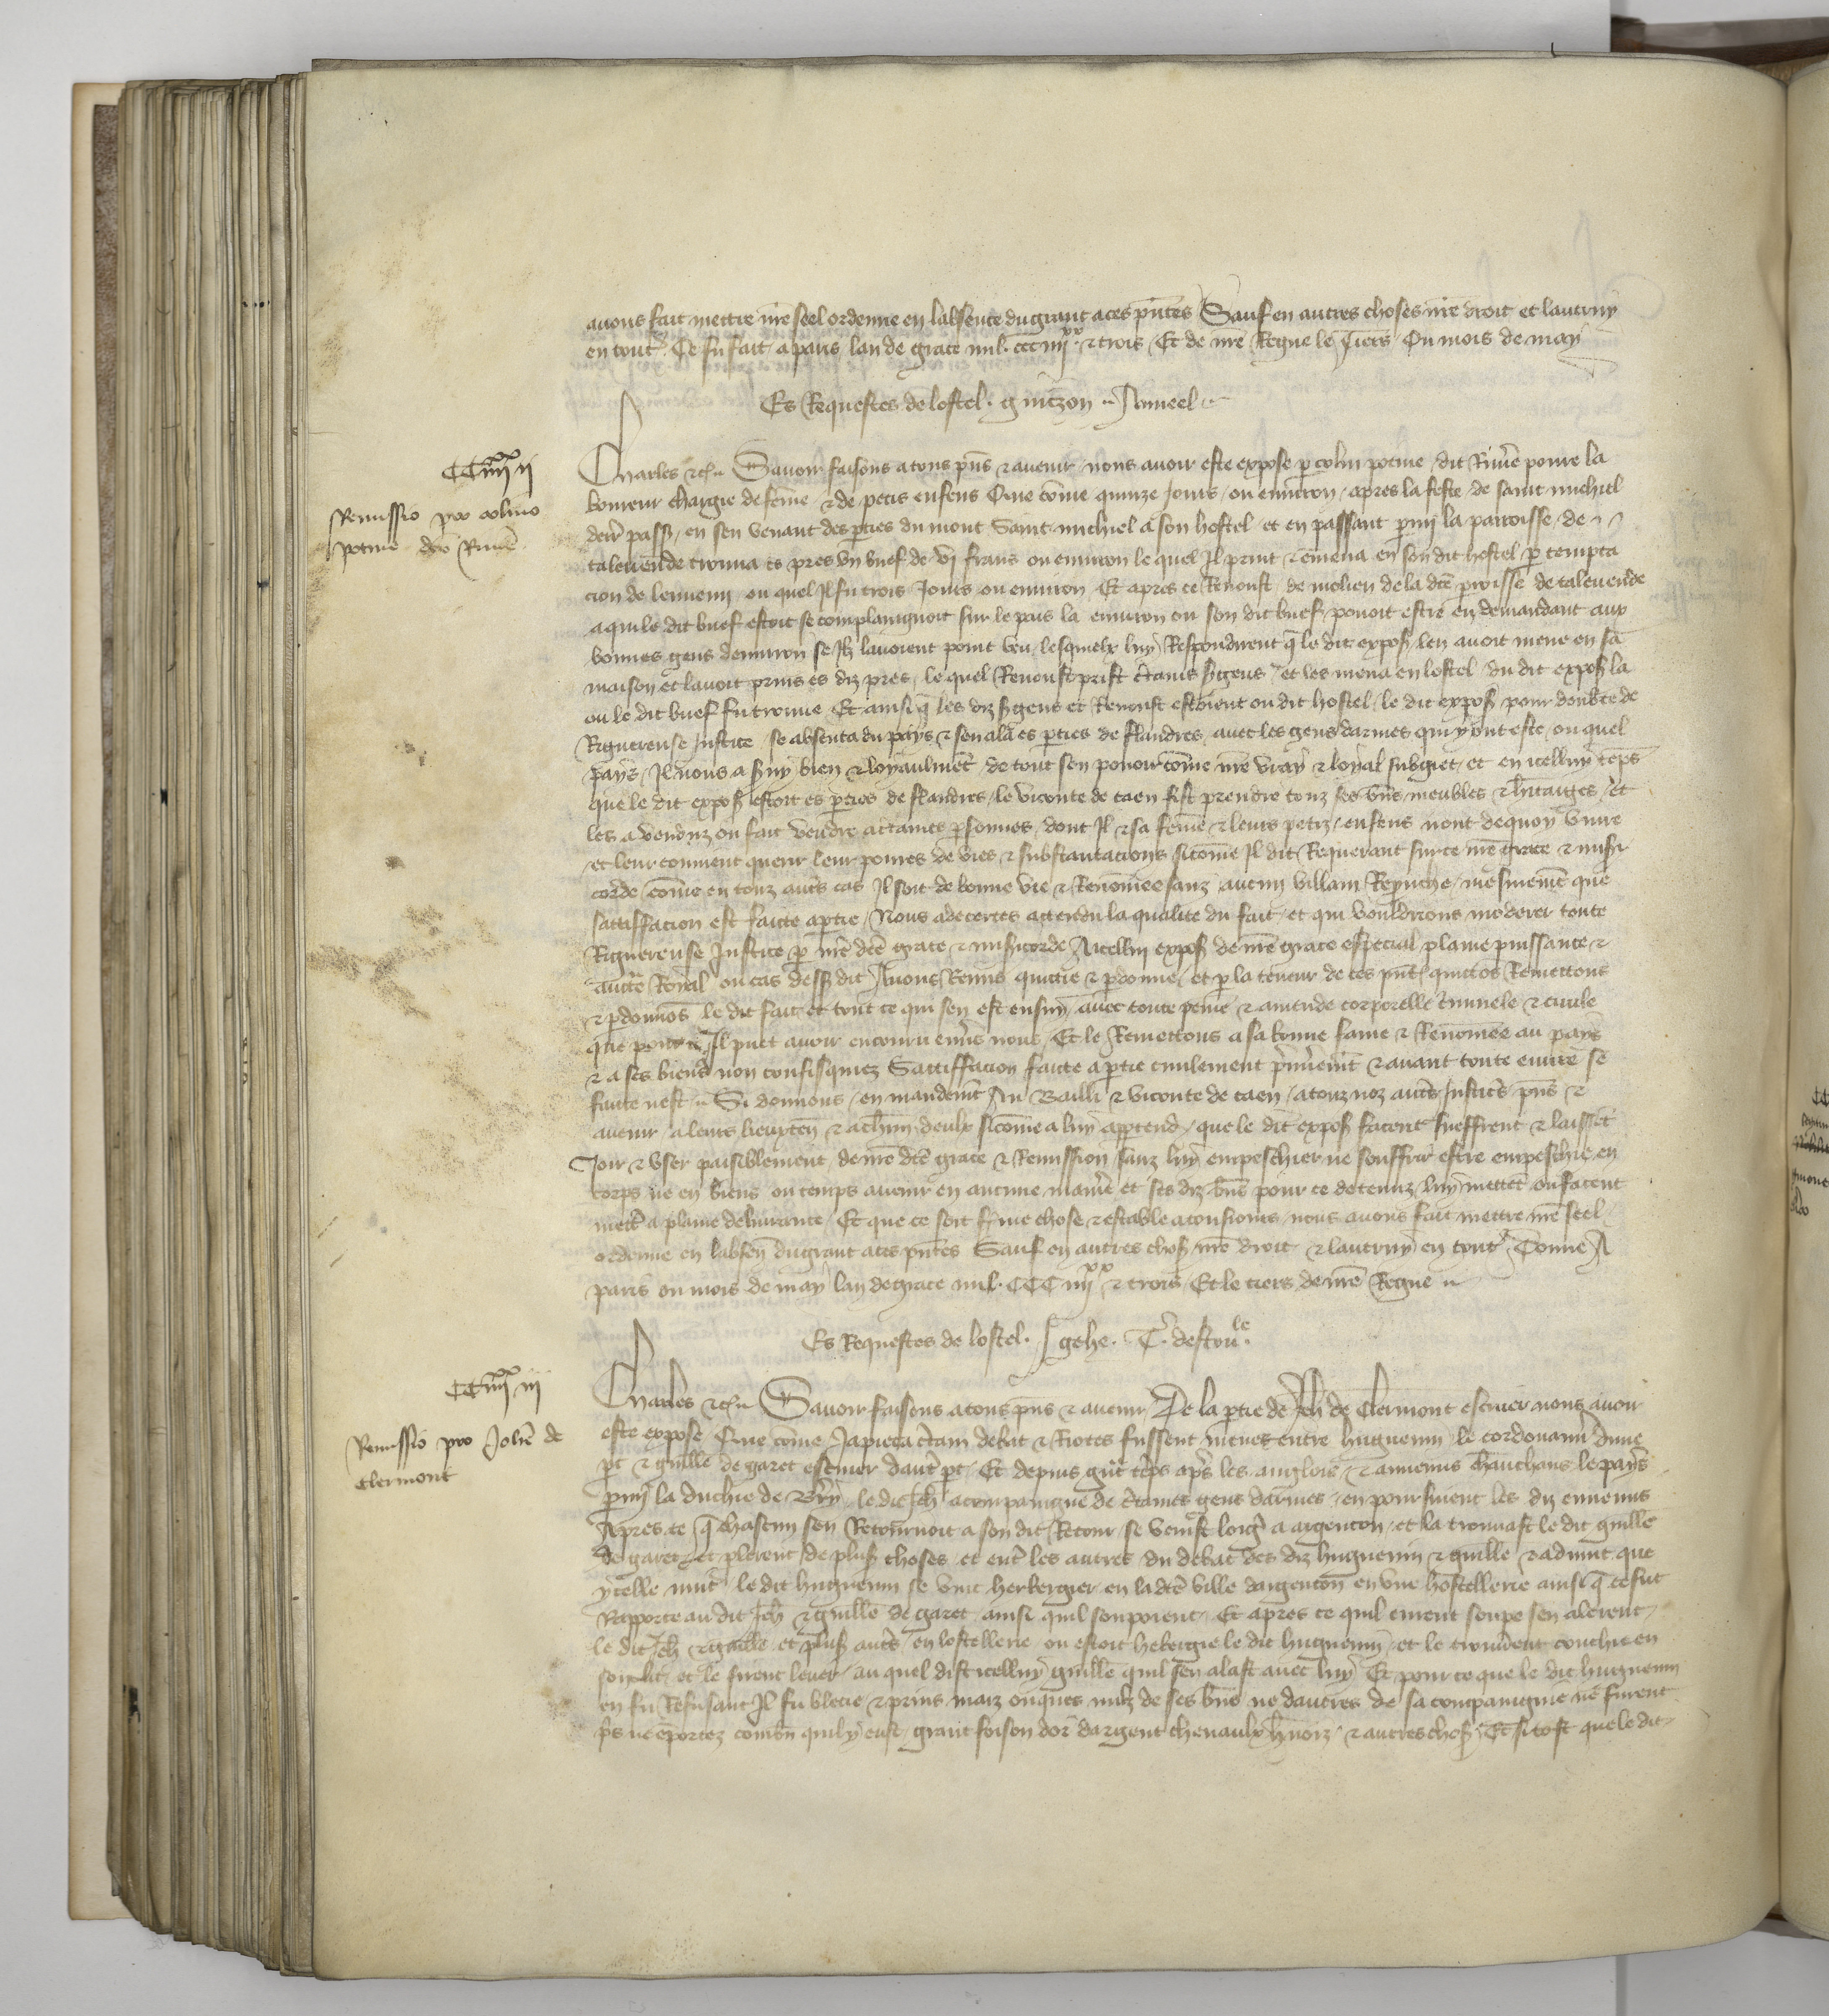 avons fait mettre nr̃e seel ordenne en labsence du grant a ces pñtes Sauf en autres choses nr̃e droit et lautruy
en tout. Ce fu fait a paris lan de grace mil. ccc iiii^xx. et trois Et de nr̃e Regne le tiers Ou mois de may
Es Requestes de lostel.
CC iiii^xx ii
Remissio pro colino
potine dc̃o Rimẽ
Charles etc. Sauoir faisons a tous pñs et auenir nous auoir este expose p colin potine dit Rimẽ poure la
boureur chargie de fẽme et de petis enfens Que cõme quinze Jours ou enuiron apres la feste de saint michiel
derr̃ pass en sen venant des pties du mont Saint michiel a son hostel et en passant pmi la parroisse de
taleuende trouua es pres vn buef de vi frans ou enuiron le quel Il print et ẽmena en son dit hostel p tempta
cion de lennemi ou quel Il fu trois Jours ou enuiron Et apres ce Renouft de molien de la dc̃e proisse de taleuende
a qui le dit buef estoit se complaingnoit sur le pais la enuiron ou son dit buef pouoit estre en demandant aux
bonnes gens denuiron se Ilz lauoient point veu lesquelx luy Respondirent q̃ le dit expos len auoit mene en sa
maison et lauoit prins es diz pres, le quel Renouft prist c̃tains s̃gens et les mena en lostel du dit expos la
ou le dit buef fu trouue Et ainsi q̃ les diz s̃gens et Renouft estoient ou dit hostel le dit expos pour doubte de
Rigoreuse Justice se absenta du pays et sen ala es pties de flandres auec les gens darmes qui y ont este, ou quel
pays Il nous a s̃uy bien et loyaulmẽt de tout son pouoir cõme nr̃e vray et loyal subgiet, et en icelluy tẽps
que le dit expos estoit es pties de flandres le viconte de caen fist prendre touz ses bñs meubles et h̃itaiges et
les a venduz ou fait vendre a c̃taines psonnes, dont Il et sa fẽme et leurs petiz enfens nont de quoy viure
et leur conuient querir leur poures de vies et substantacions si cõme Il dit Requerant sur ce nr̃e grace et mis̃i
corde cõme en touz autr̃s cas Il soit de bonne vie et Renõmee sanz aucun villain Reprouche, mesmemẽt que
sattiffacion est faicte a ptie Nous adecertes attendu la qualite du fait et qui vouldrions moderer toute
Rigoreuse Justice p nr̃e dc̃e grace et mis̃icorde A icellui expos de nr̃e grace especial plaine puissance et
auctẽ Royal ou cas dess dit Auons Remis quictie et pdonne, et p la teneur de ces pñt quictõs Remettons
et pdonnõs le dit fait et tout ce qui sen est ensuy auec toute peine et amende corporelle c̃minele et ciuile
que pour ce Il puet auoir encouru enũs nous Et le Remettons a sa bonne fame et Renõmee au pays
et a ses biens non confisquiez Sattiffacion faicte a ptie ciuilement p̃mieremẽt et auant toute euure se
faicte nest Si donnons en mandemẽt Au Bailli et viconte de caen a touz noz autr̃s Justic̃s pñs et
auenir a leurs lieuxteñ et a chũn deulx si cõme a luy append que le dit expos facent sueffrent et laissẽt
Joir et vser paisiblement de nr̃e dc̃e grace et Remission sanz luy empeschier ne souffrir estre empeschie en
corps ne en biens ou temps auenir en aucune manr̃e et ses diz bñs pour ce detenuz luy mettẽt ou facent
mettr̃ a plaine deliurance Et que ce soit ferme chose et estable a tousiours nous auons fait mettre nr̃e seel
ordenne en labseñ du grant a ces pñtes Sauf en autres chos nr̃e droit et lautruy en tout Donne A
paris ou mois de may lan de grace mil. CCC iiii^xx et trois Et le tiers de nr̃e Regne
Es Requestes de lostel. J gehe. T. destouille.
CC iiii^xx iii
Remissio pro Joh̃e de
Clermont
Charles etc. Sauoir faisons a tous pñs et auenir De la ptie de Jeh̃ de Clermont escuier nous auoir
este expose Que cõme Ja pieca c̃tain debat et Riotes fussent meues entre huguenin le cordouanni dune
pt et guille de garet escuier dautr̃ pt Et depuis gñt tẽps aps̃ les anglois et ennemis cheuauchans le pays
pmi la duchie de Berry le dit Jeh̃ acompaingne de c̃taines gens darmes en poursuient les diz ennemis
Apres ce q̃ chascun sen Retournoit a son dit Retour se venist logr̃ a argenton et la trouuast le dit guille
de garet et plerent de plus choses et entr̃ les autres du debat des diz huguenin et guille et aduint que
ycelle nuit le dit huguenin se vint herbergier en la dc̃e ville dargenton en vne hostellerie ainsi q̃ ce fut
Rapporte au dit Jeh̃ et guille de garet ainsi quil soupoient. Et apres ce quil eurent soupe sen alerent
le dit Jeh̃ et guille et plus autr̃s en lostellerie ou estoit hebergie le dit huguenin et le trouuerent couchie en
son lit et le firent leuer, au quel dist icelluy guille quil sen alast auec luy Et pour ce que le dit huguenin
en fu Refusant Il fu blecie et prins maiz onques nulz de ses bñs ne dautres de sa compaingnie ne furent
prs ne ẽportez combñ quil y eust grant foison dor dargent cheuaulx h̃nois et autres chos Et si tost que le dit